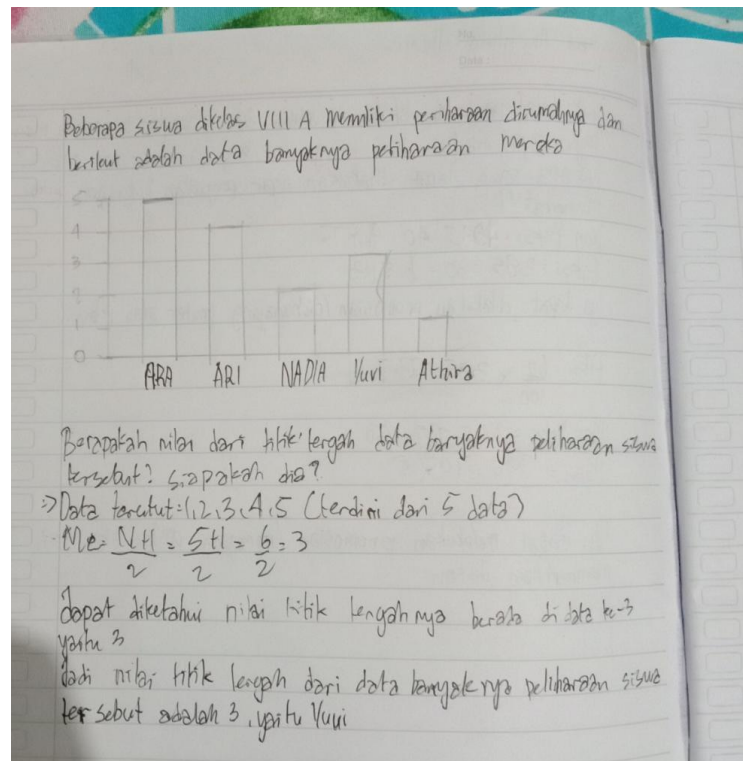 No.
Date:
Beberapa siswa dikelas VIII A memiliki peliharaan dirumahnya dan
berikut adalah data banyaknya peliharaan mereka
5
4
3
2
1
0
ARA ARI NADIA Yuvi Athira
Berapakah nilai dari titik tengah data banyaknya peliharaan siswa
tersebut? siapakah dia?
=> Data terurut: 1, 2, 3, 4, 5 (terdiri dari 5 data)
Me = N+1 = 5+1 = 6 = 3
2 2 2
dapat diketahui nilai titik tengahnya berada di data ke-3
yaitu 3
Jadi nilai titik tengah dari data banyaknya peliharaan siswa
tersebut adalah 3, yaitu Yuvi